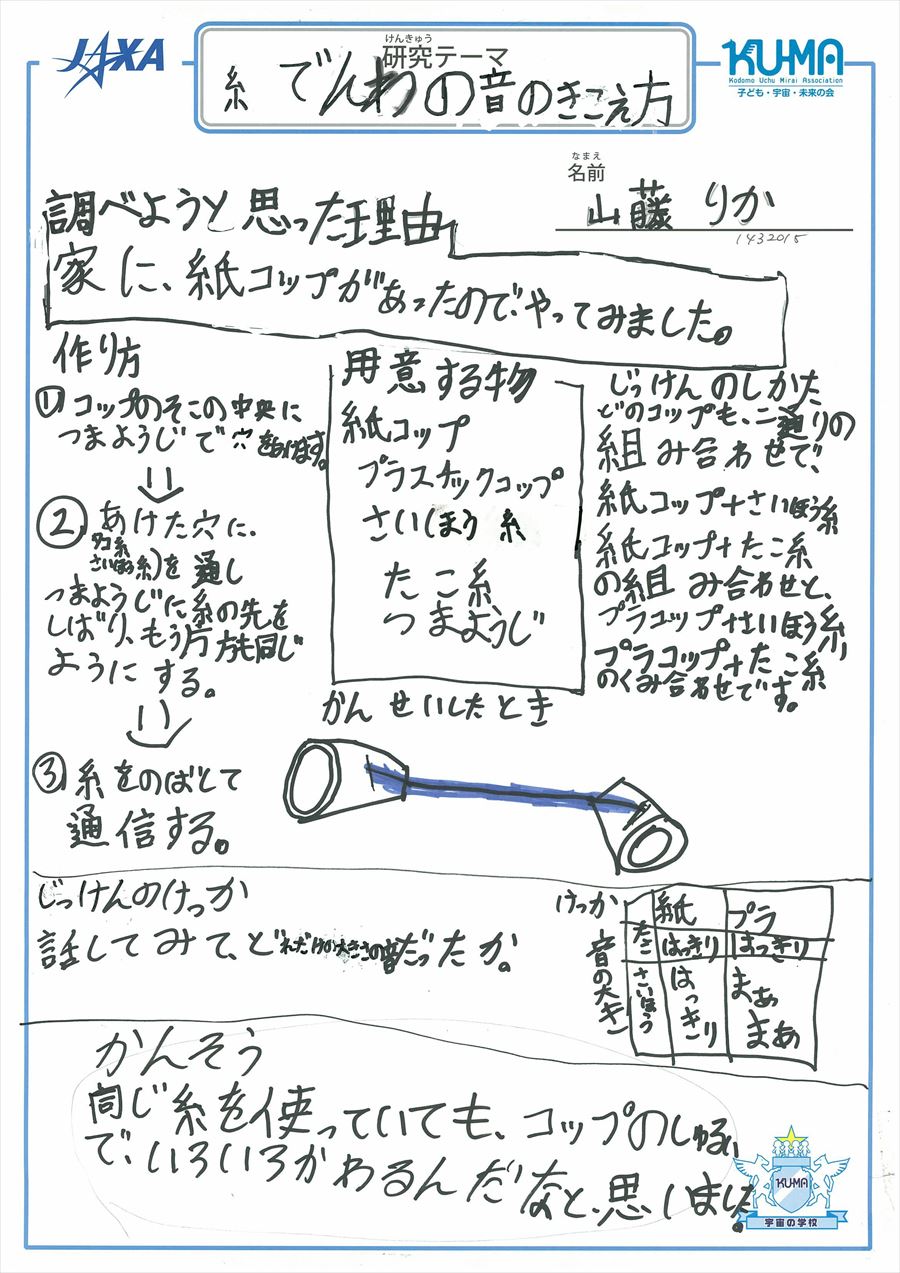 JAXA
けんきゅう
研究テーマ
糸でんわの音のきこえ方
KUMA
Kodomo Uchu Mirai Association
子ども・宇宙・未来の会
なまえ
名前
山藤 りか
1432015
調べようと思った理由
家に、紙コップがあったので、やってみました。
作り方
① コップのそこの中央に
つまようじで穴をあけます。
② あけた穴に、
タコ糸
さいほう糸)を通し
つまようじに糸の先を
しばり、もう片方も同じ
ようにする。
③ 糸をのばして
通信する。
用意する物
紙コップ
プラスチックコップ
さいほう糸
たこ糸
つまようじ
じっけんのしかた
どのコップも、二通りの
組み合わせで、
紙コップ+さいほう糸
紙コップ+たこ糸
の組み合わせと、
プラコップ+さいほう糸、
プラコップ+たこ糸
のくみ合わせです。
かんせいしたとき
じっけんのけっか
話してみて、どれだけの大きさの音だったか。
けっか
音の大キン
紙 プラ
たこ はっきり はっきり
さいほう はっきり まぁまぁ
かんそう
同じ糸を使っていても、コップのしゅるい
で、いろいろかわるんだなと、思いました。
KUMA
宇宙の学校